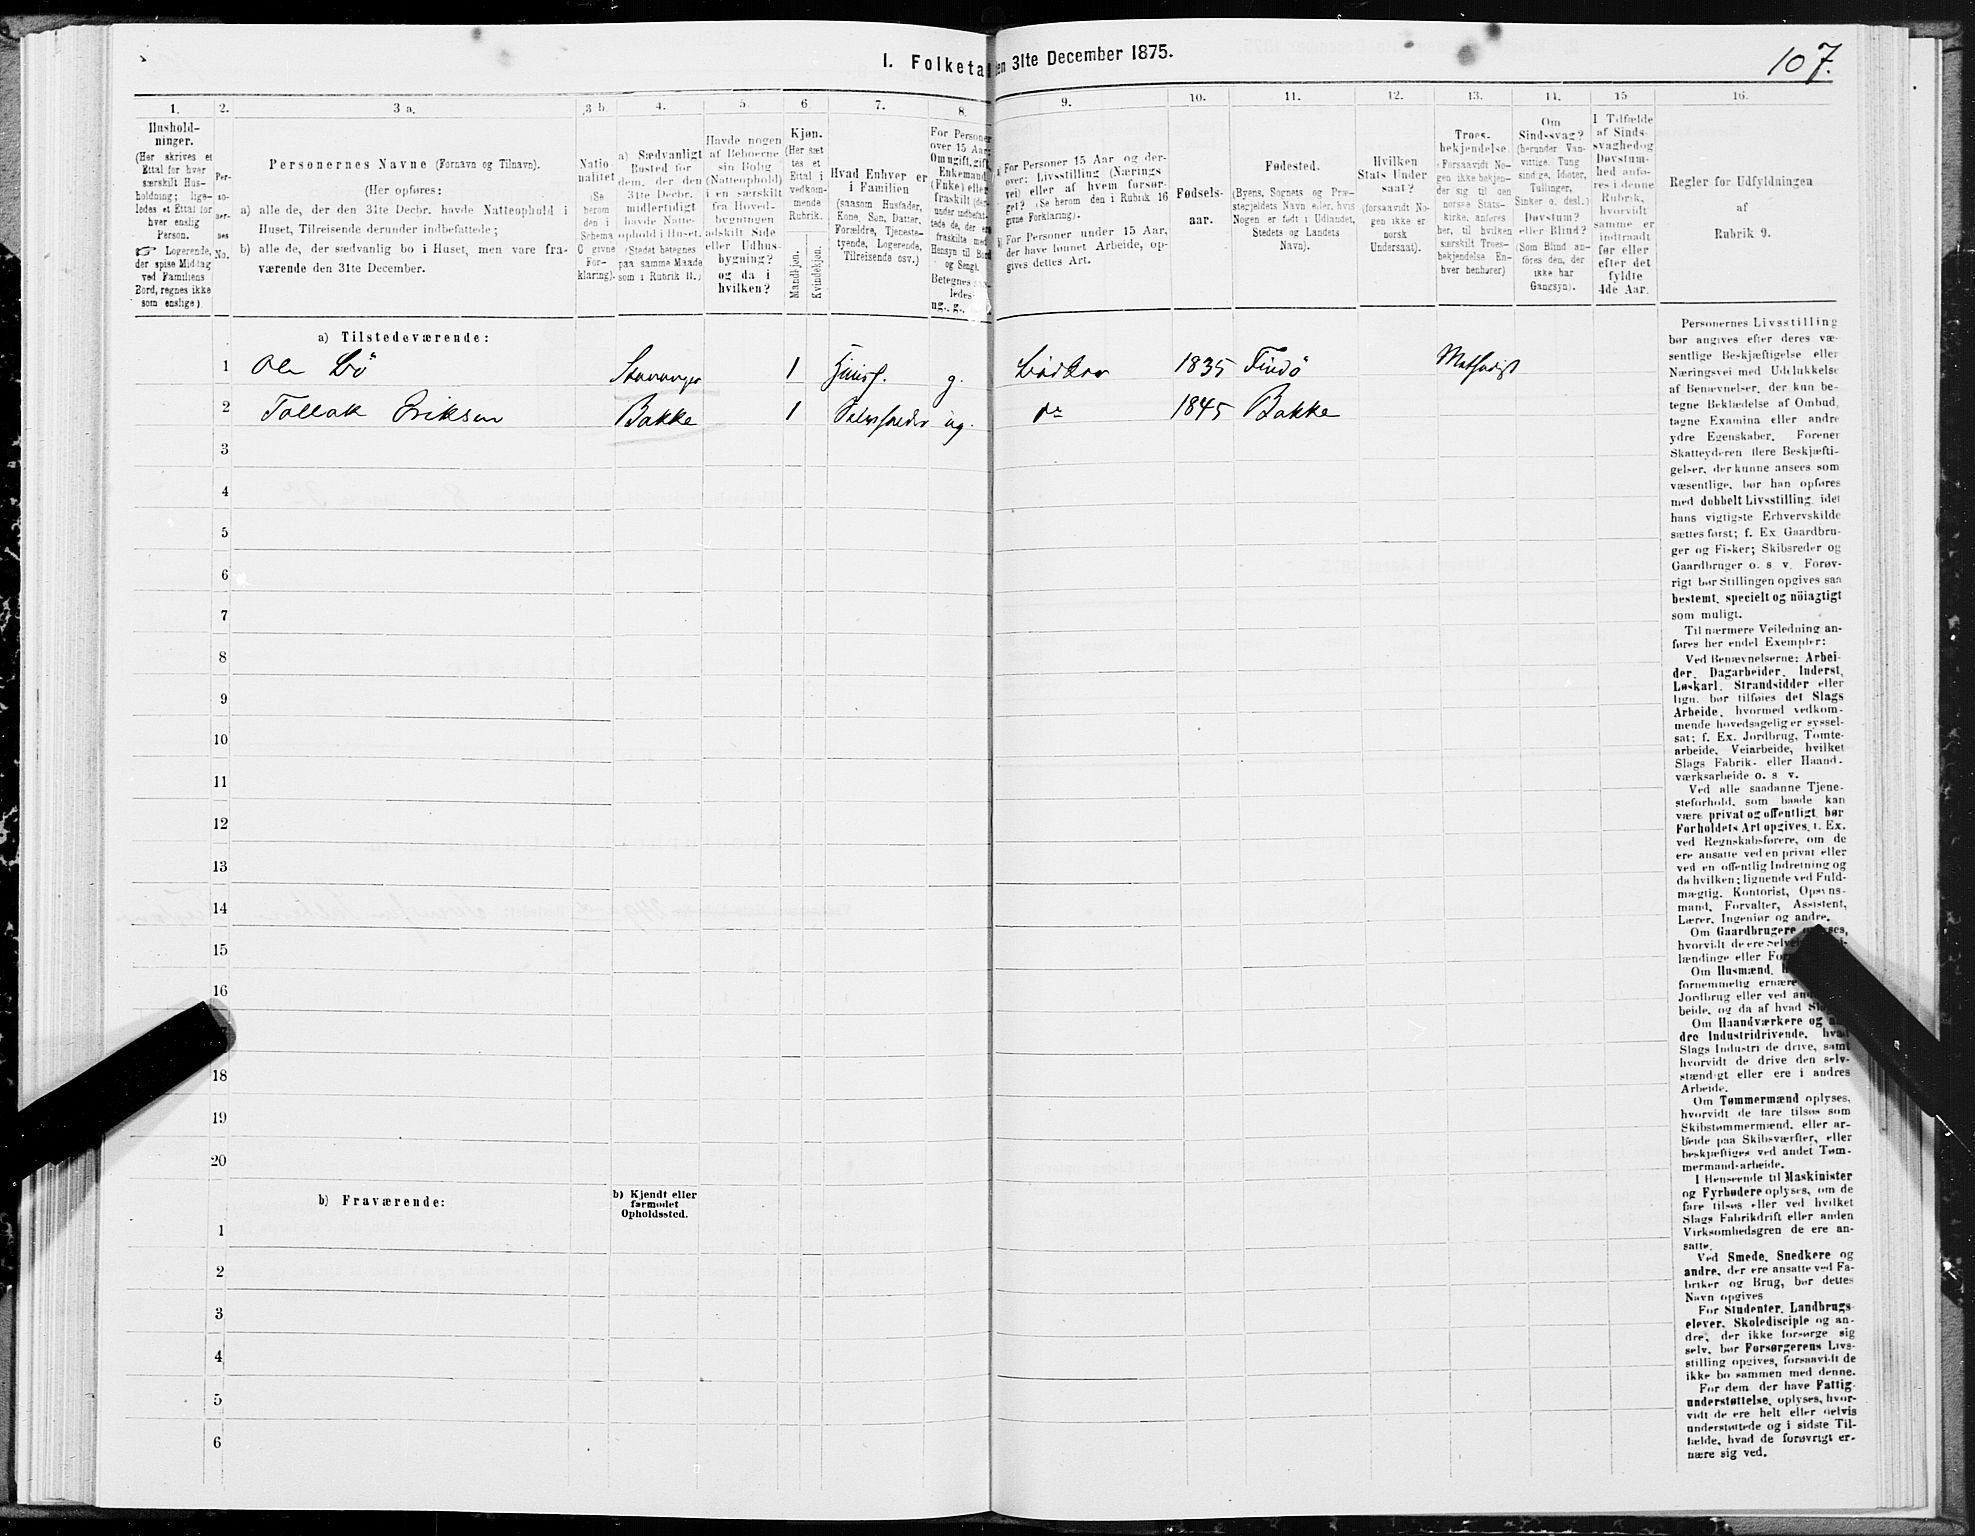 I. Folketæ en 31te December 1875.
107.
1.
2.
3 a.
3 b.
4.
5.
6
7.
8.
9.
10.
11.
12.
13.
14.
15
16.
Hushold-
ninger.
(Her skrives et
Ettal for hver
særskilt Hus-
holdning; lige-
ledes et Ettal for
hver enslig
Person.
☞ Logerende,
der spise Middag
ved Familiens
Bord, regnes ikke
som enslige)
Per-
so-
ner-
nes
No.
Personernes Navne (Fornavn og Tilnavn).
(Her opføres:
a) alle de, der den 31te Decbr. havde Natteophold i
Huset, Tilreisende derunder indbefattede;
b) alle de, der sædvanlig bo i Huset, men vare fra-
værende den 31te December.
Natio-
nalitet
(Se
herom
den i
Schema
C givne
For-
klaring).
a) Sædvanligt
Bosted for
dem, der den
31te Decbr.
midlertidigt
havde Natte-
ophold i Huset.
(Stedet betegnes
paa samme Maade
som i Rubrik 11.)
Havde nogen
af Beboerne
sin Bolig
(Natteophold)
i en særskilt
fra Hoved-
bygningen
adskilt Side
eller Udhus-
bygning?
og da i
hvilken?
Kjøn.
(Her sæt
tes et
Ettal i
vedkom-
mende
Rubrik.
Mandkjøn.
Kvindekjøn.
Hvad Enhver er
i Familien
(saasom Husfader,
Kone, Søn, Datter,
Forældre, Tjeneste-
tyende, Logerende,
Tilreisende osv.)
For Personer
over 15 Aar:
Om ugift, gift,
Enkemand
(Enke) eller
fraskilt (der-
under indbefat-
tede de, der er
fraskilte med
Hensyn til Bord
og Seng).
Betegnes saa
ledes:
ug., g.,
a) For Personer 15 Aar og der-
over: Livsstilling (Nærings
vei) eller af hvem forsør-
get? (Se herom den i Rubrik 16
givne Forklaring).
b) For Personer under 15 Aar,
der have lønnet Arbeide, op-
gives dettes Art.
Fødsels-
aar.
Fødested.
(Byens, Sognets og Præ-
stegjeldets Navn eller, hvis
Nogen er født i Udlandet,
Stedets og Landets
Navn).
Hvilken
Stats Under
saat?
(forsaavidt No-
gen ikke er
norsk
Undersaat).
Troes-
bekjendelse.
(Forsaavidt No-
gen ikke bekjen-
der sig til den
norske Stats-
kirke, anføres
her, til hvilken
særskilt Troes-
bekjendelse En-
hver henhører)
Om
Sindssvag?
(herunder Van-
vittige, Tung
sindige, Idioter,
Tullinger,
Sinker o. desl.)
Døvstum?
eller Blind?
(Som Blind an-
føres den, der
ikke har
Gangsyn).
I Tilfælde
af Sinds-
svaghed og
Døvstum-
hed anfø-
res i denne
Rubrik,
hvorvidt
samme er
indtraadt
før eller
efter det
fyldte
4de Aar.
Regler for Udfyldningen
af
Rubrik 9.
a) Tilstedeværende:
1 Ole Bø Stavanger 1 g. 1835 Findö
2 Tollak Eriksen Bakke 1 ug. do 1845 Bakke
3
4
5
6
7
8
9
10
11
12
13
14
15
16
18
19
20
b) Fraværende:
b) Kjendt eller
formodet
Opholdssted.
1
2
3
4
5
6
Personernes Livsstilling
bør angives efter deres væ-
sentlige Beskjæftigelse eller
Næringsvei med Udelukkelse
af Benævnelser, der kun be-
tegne Beklædelse af Ombud,
tagne Examina eller andre
ydre Egenskaber. Forener
Skatteyderen flere Beskjæfti-
gelser, der kunne ansees som
væsentlige, bør han opføres
med dobbelt Livsstilling, idet
hans vigtigste Erhvervskilde
sættes først; f. Ex. Gaardbru-
ger og Fisker; Skibsreder og
Gaardbruger o. s. v. Forøv-
rigt bør Stillingen opgives saa
bestemt, specielt og nöiagtigt
som muligt.
Til nærmere Veiledning an-
føres her endel Exempler:
Ved Benævnelserne: Arbei-
der, Dagarbeider, Inderst,
Løskarl, Strandsidder eller
lign. bør tilføies det Slags
Arbeide, hvormed vedkom-
mende hovedsagelig er syssel-
sat; f. Ex. Jordbrug, Tomte-
arbeide, Veiarbeide, hvilket
Slags Fabrik- eller Haand-
værksarbeide o. s. v.
Ved alle saadanne Tjene-
steforhold, som baade kan
være privat og offentligt, bør
Forholdets Art opgives, f. Ex.
ved Regnskabsførere, om de
ere ansatte ved en privat eller
ved en offentlig Indretning og
da hvilken; lignende ved Fuld-
mægtig, Kontorist, Opsyns-
mand, Forvalter, Assistent,
Lærer, Ingeniør og andre.
Om Gaardbrugere
hvorvidt de ere
lændinge eller
Om Husmænd,
fornemmelig
Jordbrug eller ved
beide, og da af hvad
Om Haandværkere og
dre Industridrivende, hvad
Slags Industri de drive, samt
hvorvidt de drive den selv-
stændigt eller ere i andres
Arbeide.
Om Tømmermænd oplyses,
hvorvidt de fare tilsøs som
Skibstømmermænd, eller ar-
beide paa Skibsværfter, eller
beskjæftiges ved andet Tøm-
mermand-arbeide.
I Henseende til Maskinister
og Fyrbødere oplyses, om de
fare tilsøs eller ved hvilket
Slags Fabrikdrift eller anden
Virksomhedsgren de ere an-
satte.
Ved Smede, Snedkere og
andre, der ere ansatte ved Fa-
briker og Brug, bør dettes
Navn opgives
For Studenter, Landbrugs-
elever, Skoledisciple og an-
dre, der ikke forsørge sig
selv, bør Forsørgerens Livs-
stilling opgives, forsaavidt de
ikke bo sammen med denne.
For dem der have Fattig-
understøttelse, oplyses, hvor-
vidt de ere helt eller delvis
understøttede og i sidste Til-
fælde, hvad de forøvrigt er-
nære sig ved.